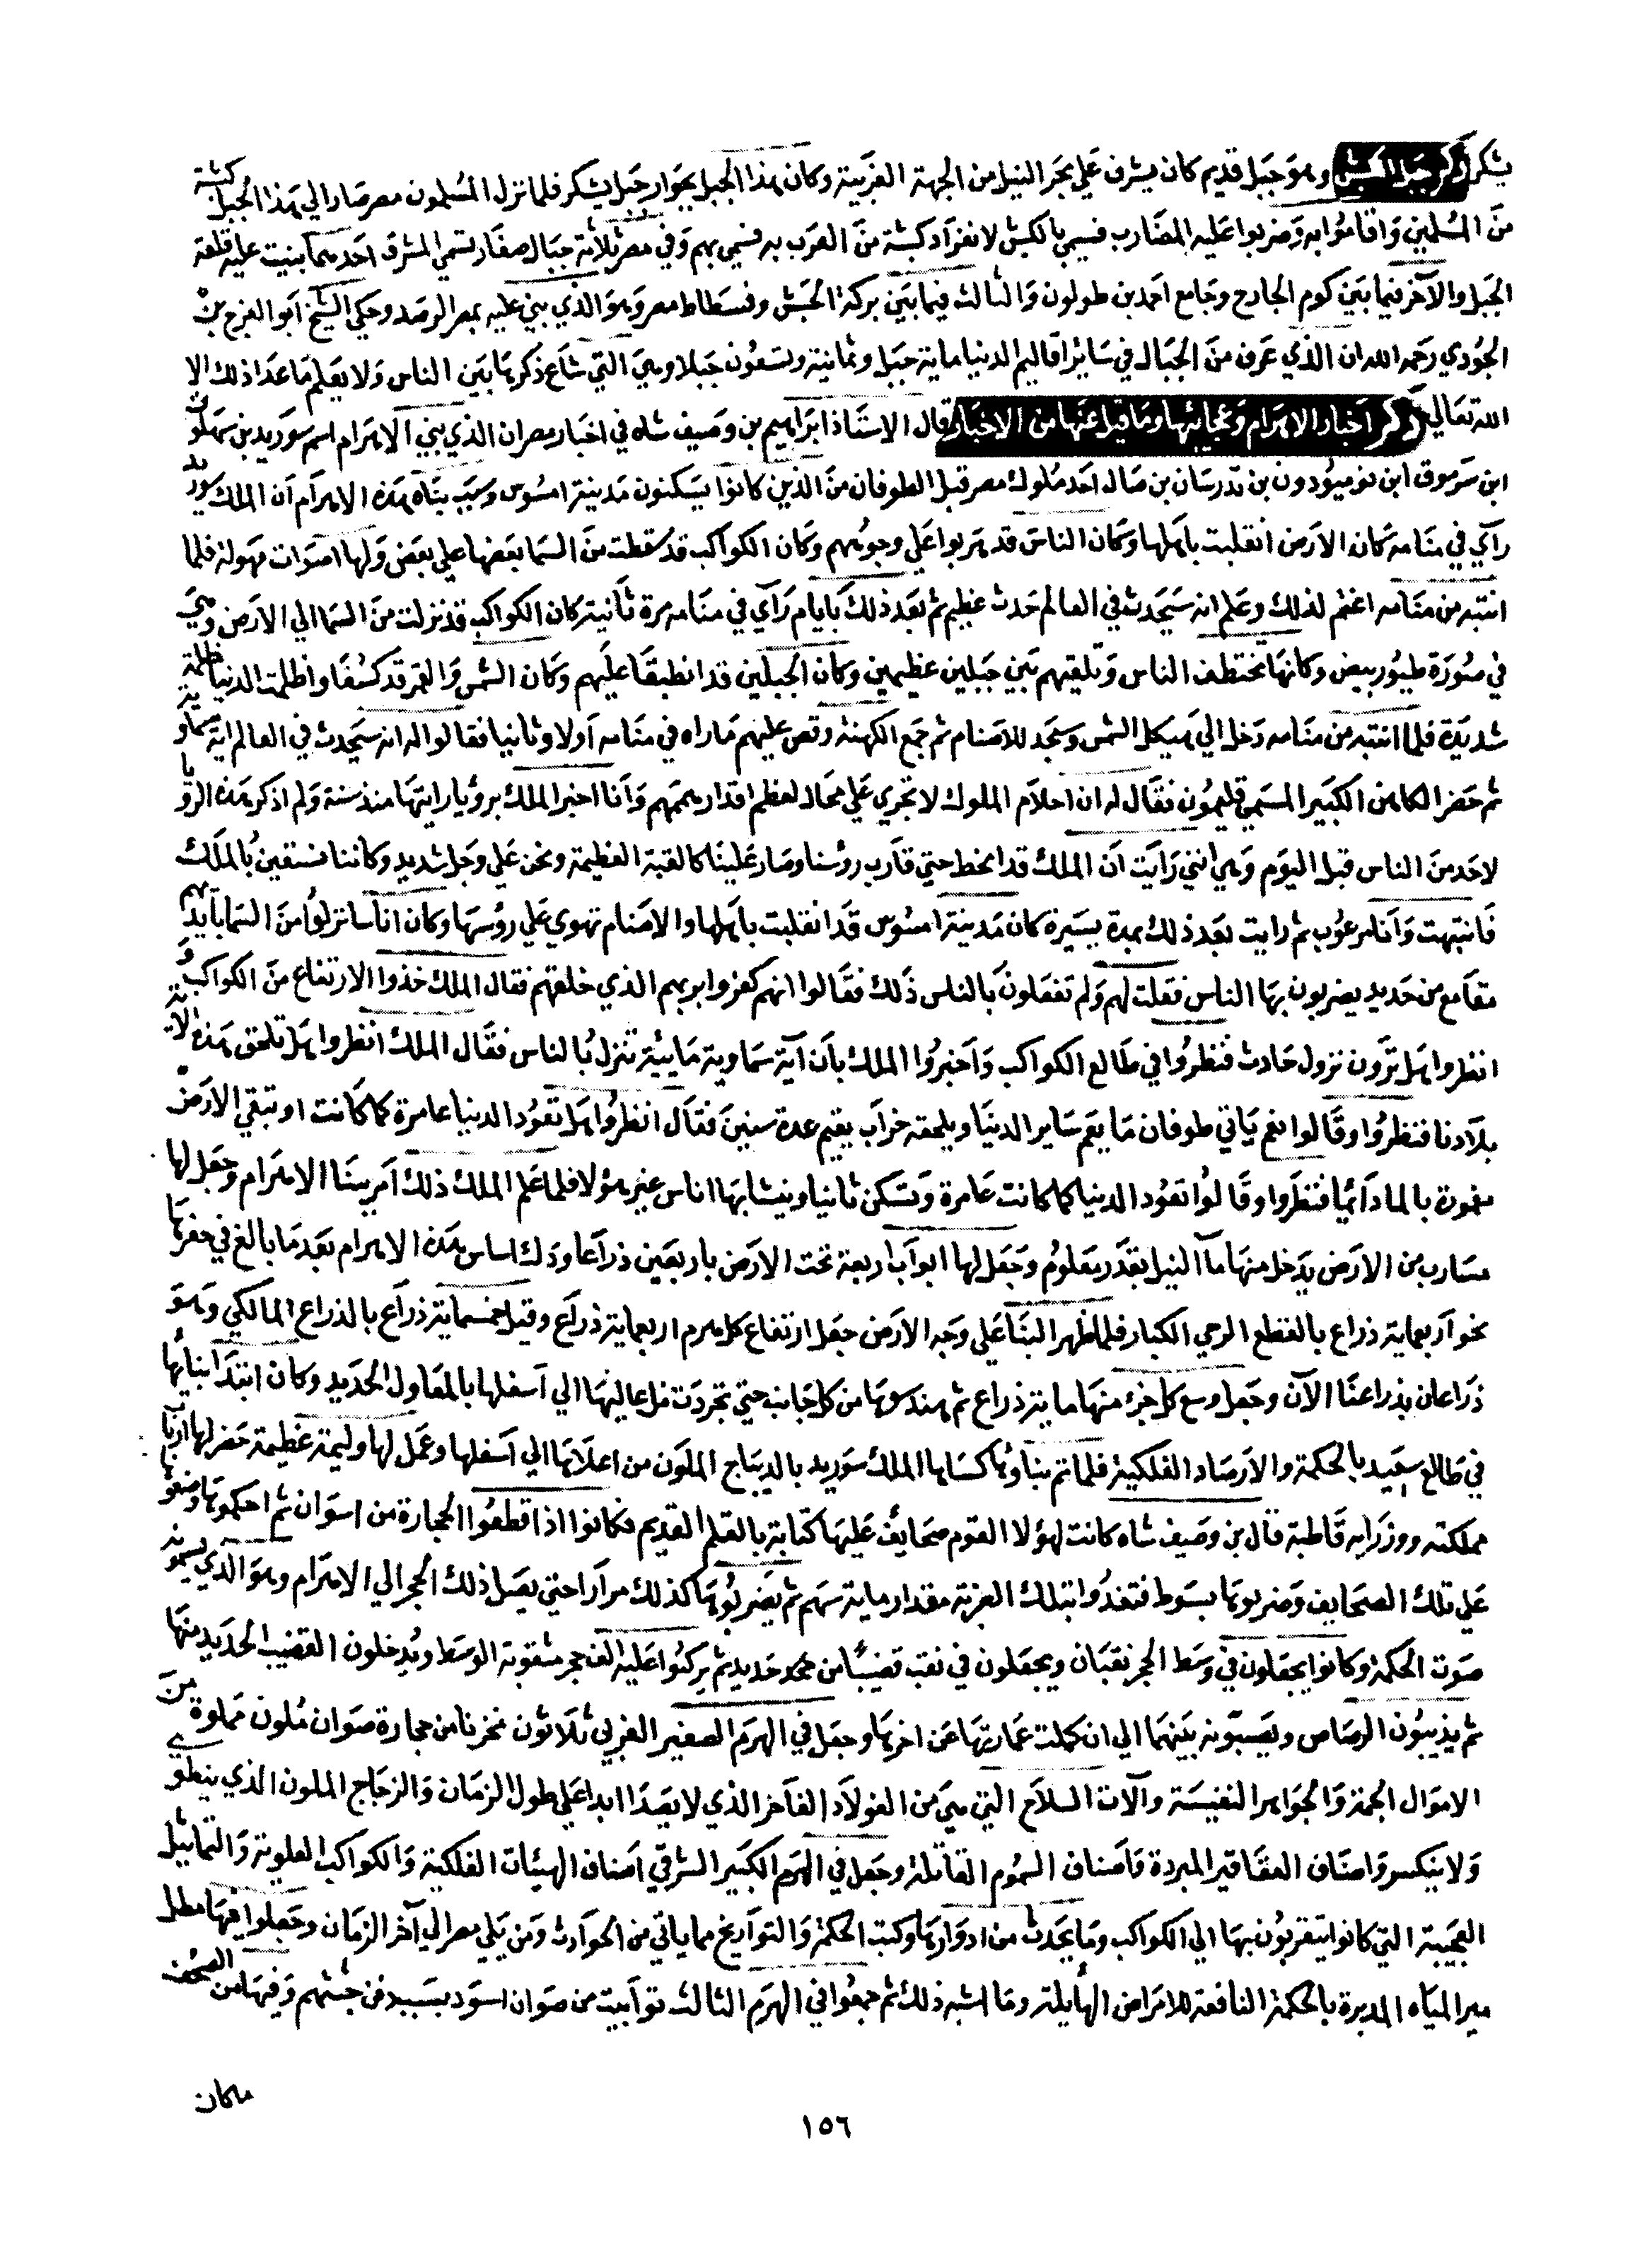 يشكر ذكر جبل الكبش وهو جبل قديم كان يشرف علي بحر النيل من الجهة الغربية وكان هذا الجبل بجوار جبل يشكر فلما نزل المسلمون مصر صار الي هذا الجبل كبشة
من المسلمين واقاموا به وضربوا عليه المضارب فسمي بالكبش لانفراد كبشة من العرب به فسمي بهم وفي مصر ثلاثة جبال صغار تسمي المشرف احدهما بنيت عليه قلعة
الجبل والآخر فيما بين كوم الجارح وجامع احمد بن طولون والثالث فيما بين بركة الحبش وفسطاط مصر وهو الذي بني عليه بمصر الرصد وحكي الشيخ ابو الفرج بن
الجودي رحمه الله ان الذي عرف من الجبال في سائر اقاليم الدنيا ماية جبل وثمانية وتسعون جبلا وهي التي شاع ذكرها بين الناس ولا يعلم ما عدا ذلك الا
الله تعالي ذكر اخبار الاهرام وعجائبها وما قيل عنها من الاخبار قال الاستاذ ابراهيم بن وصيف شاه في اخبار مصر ان الذي بني الاهرام اسم سوريد بن سهلوق
ابن سرموق ابن بن تدرسان بن صال احد ملوك مصر قبل الطوفان من الذين كانوا يسكنون مدينة امسوس وسبب بناه هذه الاهرام ان الملك سوريد
رآي في منامه كان الارض انقلبت باهلها وكان الناس قد هربوا علي وجوههم وكان الكواكب قد سقطت من السما بعضها علي بعض ولها اصوات مهولة فلما
انتبه من منامه اغتم لذلك وعلم انه سيحدث في العالم حدث عظيم ثم بعد ذلك بايام رآي في منامه مرة ثانية كان الكواكب قد نزلت من السما الي الارض وهي
في صورة طيور بيض وكانها تختطف الناس وتلقيهم بين جبلين عظيمين وكان الجبلين قد انطبقا عليهم وكان الشمس والقمر قد كسفا واظلمت الدنيا ظلمة
شديدة فلما انتبه من منامه دخل الي هيكل الشمس وسجد للاصنام ثم جمع الكهنة وقص عليهم ما راه في منامه اولا وثانيا فقالوا له انه سيحدث في العالم اية سماوية
ثم حضر الكاهن الكبير المسمي قليمون فقال له ان احلام الملوك لا تجري علي محال لعظم اقدارهم وانا اخبر الملك برؤيا رايتها منذ سنة ولم اذكر هذه الرؤيا
لاحد من الناس قبل اليوم وهي انني رايت ان الملك قد انحط حتي قارب رؤسنا وصار علينا كالقبة العظيمة ونحن علي وجل شديد وكاننا نستغين بالملك
فانتبهت وانا مرعوب ثم رايت بعد ذلك بمدة يسيرة كان مدينة امسوس قد انقلبت باهلها والاصنام تهوي علي رؤسها وكان اناسا نزلوا من السما بايديهم
مقامع من حديد يضربون بها الناس فقلت لهم ولم تفعلون بالناس ذلك فقالوا انهم كفروا بربهم الذي خلقهم فقال الملك خذوا الارتفاع من الكواكب و
انظروا هل ترون نزول حادث فنظروا في طالع الكواكب واخبروا الملك بان آية سماوية مايئية تنزل بالناس فقال الملك انظروا هل تلحق هذه الاية
بلادنا فنظروا وقالوا نعم ياتي طوفان ما يعم ساير الدنيا ويلحقه خراب يقيم عدة سنين فقال انظروا هل تعود الدنيا عامرة كما كانت او تبقي الارض
مغمورة بالما دائما فنظروا وقالوا تعود الدنيا كما كانت عامرة وتسكن ثانيا وينشا بها اناس غير هؤلا فلما علم الملك ذلك امر ببنا الاهرام وجعل لها
مسارب من الارض يدخل منها ما النيل بقدر معلوم وجعل لها ابواب اربعة تحت الارض باربعين ذراعا ودك اساس هذه الاهرام بعد ما بالغ في حفرها
نحو اربعماية ذراع بالقطع الرحي الكبار فلما ظهر البنا علي وجه الارض جعل ارتفاع كل هرم اربعماية ذراع وقيل خمسماية ذراع بالذراع المالكي وهو
ذراعان بذراعنا الآن وجعل وسع كل جزء منها ماية ذراع ثم هندسوها من كل جانب حتي تجردت من اعاليها الي اسفلها بالمعاول الحديد وكان ابتدا بنائها
في طالع سعيد بالحكمة والارصاد الفلكية فلما تم بناؤها كساها الملك سوريد بالديباج الملون من اعلاها الي اسفلها وعمل لها وليمة عظيمة حضر لها ارباب
مملكته ووزرايه قاطبة قال بن وصيف شاه كانت لهؤلا القوم صحايف عليها كتابة بالقلم القديم فكانوا اذا قطعوا الحجارة من اسوان ثم احكموها وضعوا
علي تلك الصحايف وضربوها بسوط فتغدوا بتلك الضربة مقدار ماية سهم ثم يضربوها كذلك مرارا حتي يصل ذلك الحجر الي الاهرام وهو الذي يسمونه
صوت الحكمة وكانوا يجعلون في وسط الحجر نقبان ويجعلون في نقب قضيبا من حديد ثم يركبوا عليه الف حجر مثقوبة الوسط ويدخلون القضيب الحديد منها
ثم يذيبون الرصاص ويصبونه بينهما الي ان كملت عمارتها عن اخرها وجعل في الهرم الصغير الغربي ثلاثون مخزنا من حجارة صوان ملون مملوة من
الاموال الجمة والجواهر النفيسة وآلات السلاح التي هي من الفولاد الفاخر الذي لا يصدا ابدا علي طول الزمان والزجاج الملون الذي ينطوي
ولا ينكسر واصناف العقاقير المبردة واصناف السموم القاتلة وجعل في الهرم الكبير الشرقي اصناف الهيئات الفلكية والكواكب العلوية والتماثيل
العجيبة التي كانوا يتقربون بها الي الكواكب وما يحدث من ادوارها وكتب الحكمة والتواريخ مما ياتي من الحوادث ومن يلي مصر الي آخر الزمان وجعلوا فيها
المياه المدبرة بالحكمة النافعة للامراض الهايلة وما اشبه ذلك ثم جمعوا في الهرم الثالث توابيت من صوان اسود بسبب دفن جثتهم وفيها من الصحف
ماكان
١٥٦